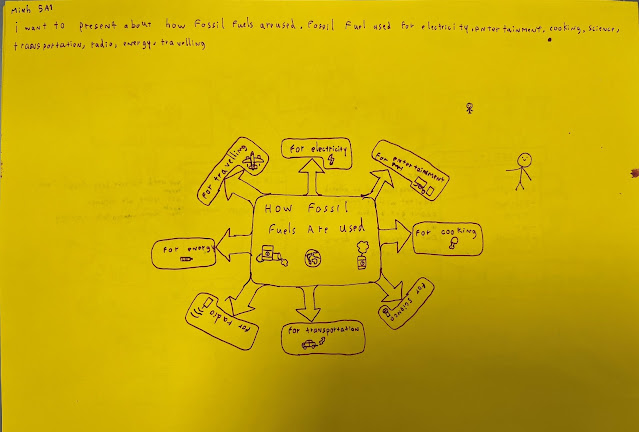 Minh 5A1
i want to present about how Fossil Fuels are used. Fossil Fuel used for electricity, entertainment, cooking, science,
transportation, radio, energy, travelling
for electricity
for travelling
for entertainment
How Fossil
Fuels Are Used
for energy
for cooking
for radio
for science
for transportation